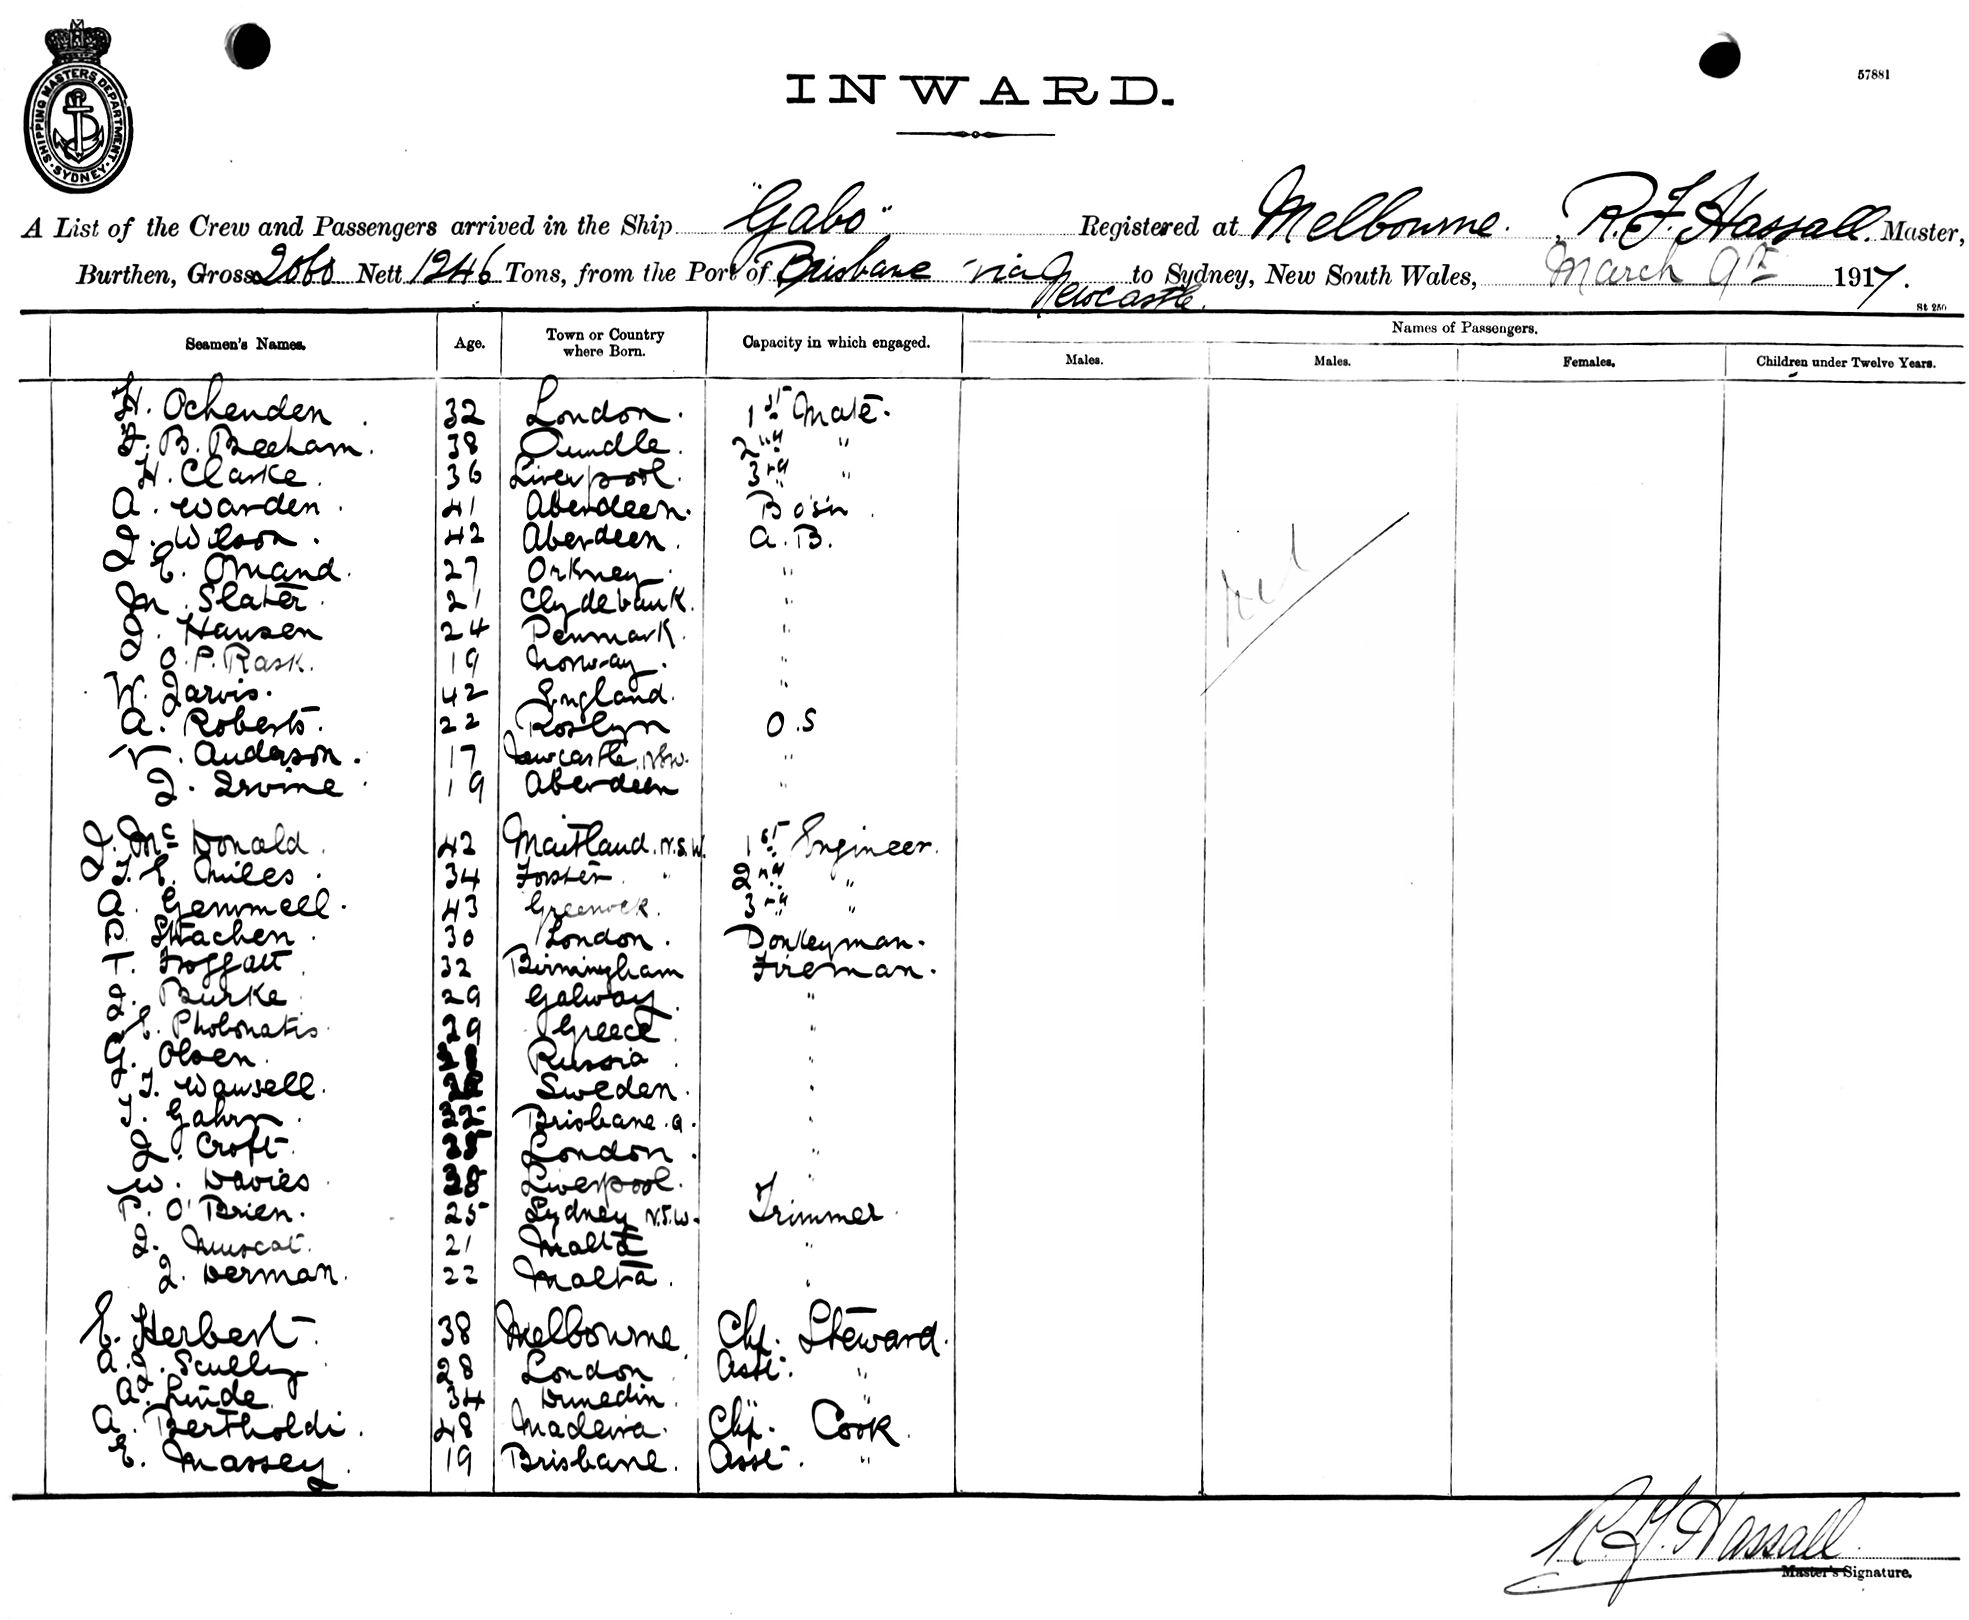 SHIPPING MASTERS DEPARTMENT · SYDNEY ·
INWARD.
57881
A List of the Crew and Passengers arrived in the Ship "Gabo" Registered at Melbourne. R. F. Hassall. Master,
Burthen, Gross 2060 Nett 1246 Tons, from the Port of Brisbane via Newcastle. to Sydney, New South Wales, March 9th 1917.
St 250
Seamen's Names. Age. Town or Country where Born. Capacity in which engaged. Names of Passengers.
Males. Males. Females. Children under Twelve Years.
H. Ochenden 32 London. 1st Mate.
F. B. Beeham. 38 Oundle 2nd "
H. Clarke. 36 Liverpool. 3rd "
A. Warden. 41 Aberdeen. Bosn.
J. Wilson. 42 Aberdeen. A.B.
J. E. Omand. 27 Orkney. "
Jn. Slater. 21 Clydebank. "
J. Hansen 24 Denmark. "
O. P. Rask. 19 Norway. "
W. Jarvis. 42 England. "
A. Roberts. 22 Roslyn O.S
V. Anderson. 17 Newcastle. NSW. "
J. Irvine 19 Aberdeen "
Nil
J. Mc Donald. 42 Maitland. N.S.W. 1st Engineer.
J. E. Miles. 34 Forster " 2nd "
A. Gemmell. 43 Greenock. 3rd "
P. Strachen. 30 London. Donkeyman.
T. Froggatt. 32 Birmingham Fireman.
J. Burke. 29 Galway. "
E. Phobonatis. 29 Greece. "
G. Olsen. Russia. "
J. Wansell. Sweden. "
J. Gahrn. 32 Brisbane. Q. "
J. Croft. 35 London. "
W. Davies. 38 Liverpool. "
P. O'Brien. 25 Sydney N.S.W. Trimmer.
J. Muscat. 21 Malta "
J. Derman. 22 Malta. "
E. Herbert. 38 Melbourne. Chf. Steward.
A. J. Scully 28 London Asst. "
A. Linde. 34 Dunedin. "
A. Bertholdi. 48 Madeira. Chf. Cook.
E. Massey. 19 Brisbane. Asst. "
R. F. Hassall.
Master's Signature.